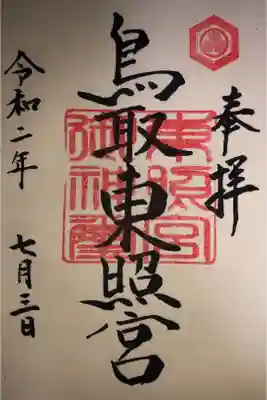 奉拝
鳥取東照宮
令和二年 七月三日